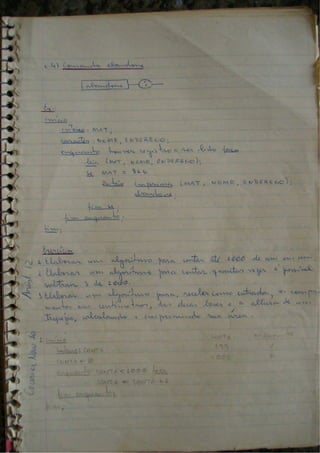 2.4) Comando abandone
abandone
Ex:
início
inteiro: MAT,
caracter: NOME, ENDEREÇO;
enquanto houver registro a ser lido faça
leia (MAT, NOME, ENDEREÇO);
se MAT = 
então imprima (MAT, NOME, ENDEREÇO);
abandone;
fim se
fim enquanto;
fim;
Exercícios
1 Elaborar um algoritmo para contar até 1000 de um em um.
2 Elaborar um algoritmo para contar quantas vezes é possível
subtrair 3 de 2000.
3 Elaborar um algoritmo para, receber como entrada, o
em centímetros, das duas bases e a altura de um
Trapézio, calculando e imprimindo sua área.
início
inteiro: CONTA
CONTA ← 0
enquanto CONTA < 1000 faça
CONTA ← CONTA + 1
fim enquanto;
fim;
CONTA
999
1000